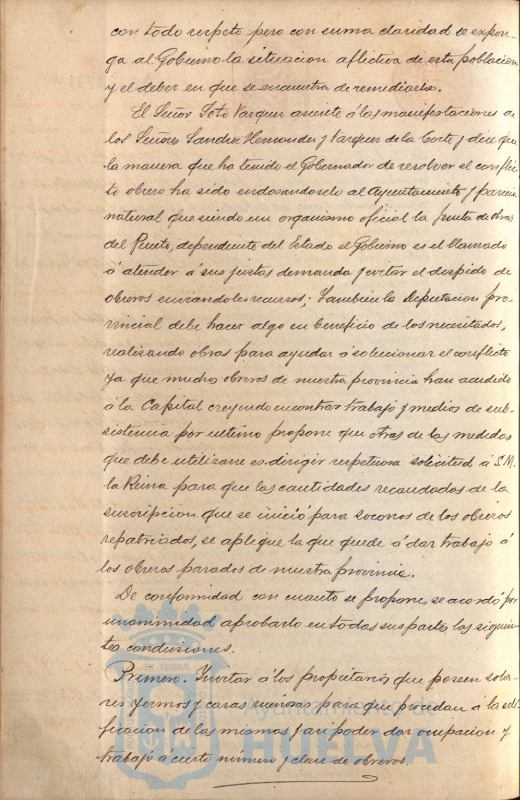 con todo respeto pero con suma claridad se expon-
ga al Gobierno la situacion aflictiva de esta poblacion
y el deber en que se encuentra de remediarla.
El Señor Soto Vazquez asiente á las manifestaciones de
los Señores Sanchez Hernandez y Vazquez de la Corte y dice que
la manera que ha tenido el Gobernador de resolver el conflic-
to obrero ha sido endosandoselo al Ayuntamiento y parecia
natural que siendo un organismo oficial la Junta de obras
del Puerto, dependiente del Estado el Gobierno es el llamado
á atender á sus justas demanda y evitar el despido de
obreros enviandoles recursos; Tambien la Diputacion pro-
vincial debe hacer algo en beneficio de los necesitados,
realizando obras para ayudar á soleccionar el conflicto
ya que muchos obreros de nuestra provincia han acudido
á la Capital creyendo encontrar trabajo y medios de sub-
sistencia por ultimo propone que otras de las medidas
que debe utilizarse es dirigir respetuosa solicitud á S.M.
la Reina para que las cantidades recaudadas de la
suscripcion que se inició para socorros de los obreros
repatriados, se aplique la que quede á dar trabajo á
los obreros parados de nuestra provincia.
De conformidad con cuanto se propone, se acordó por
unanimidad aprobarlo en todas sus partes, las siguien-
tes condusiones.
Primero. Invitar á los propietarios que poseen sola-
res yermos y casas ruinosas para que procedan á la edi-
ficacion de las mismas y asi poder dar ocupacion y
trabajo á cierto número y clase de obreros.
Ayuntamiento de
HUELVA